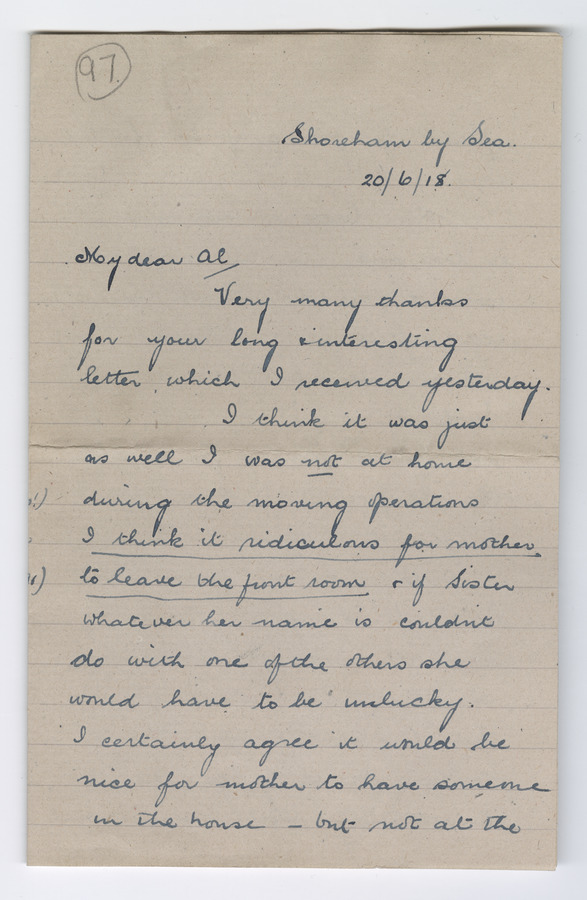 97.
Shoreham by Sea.
20/6/18.
My dear Al
Very many thanks
for your long & interesting
letter, which I received yesterday.
I think it was just
as well I was not at home
during the moving operations
I think it ridiculous for mother
to leave the front room & if Sister
whatever her name is couldnt
do with one of the others she
would have to be unlucky.
I certainly agree it would be
nice for mother to have someone
in the house – but not at the